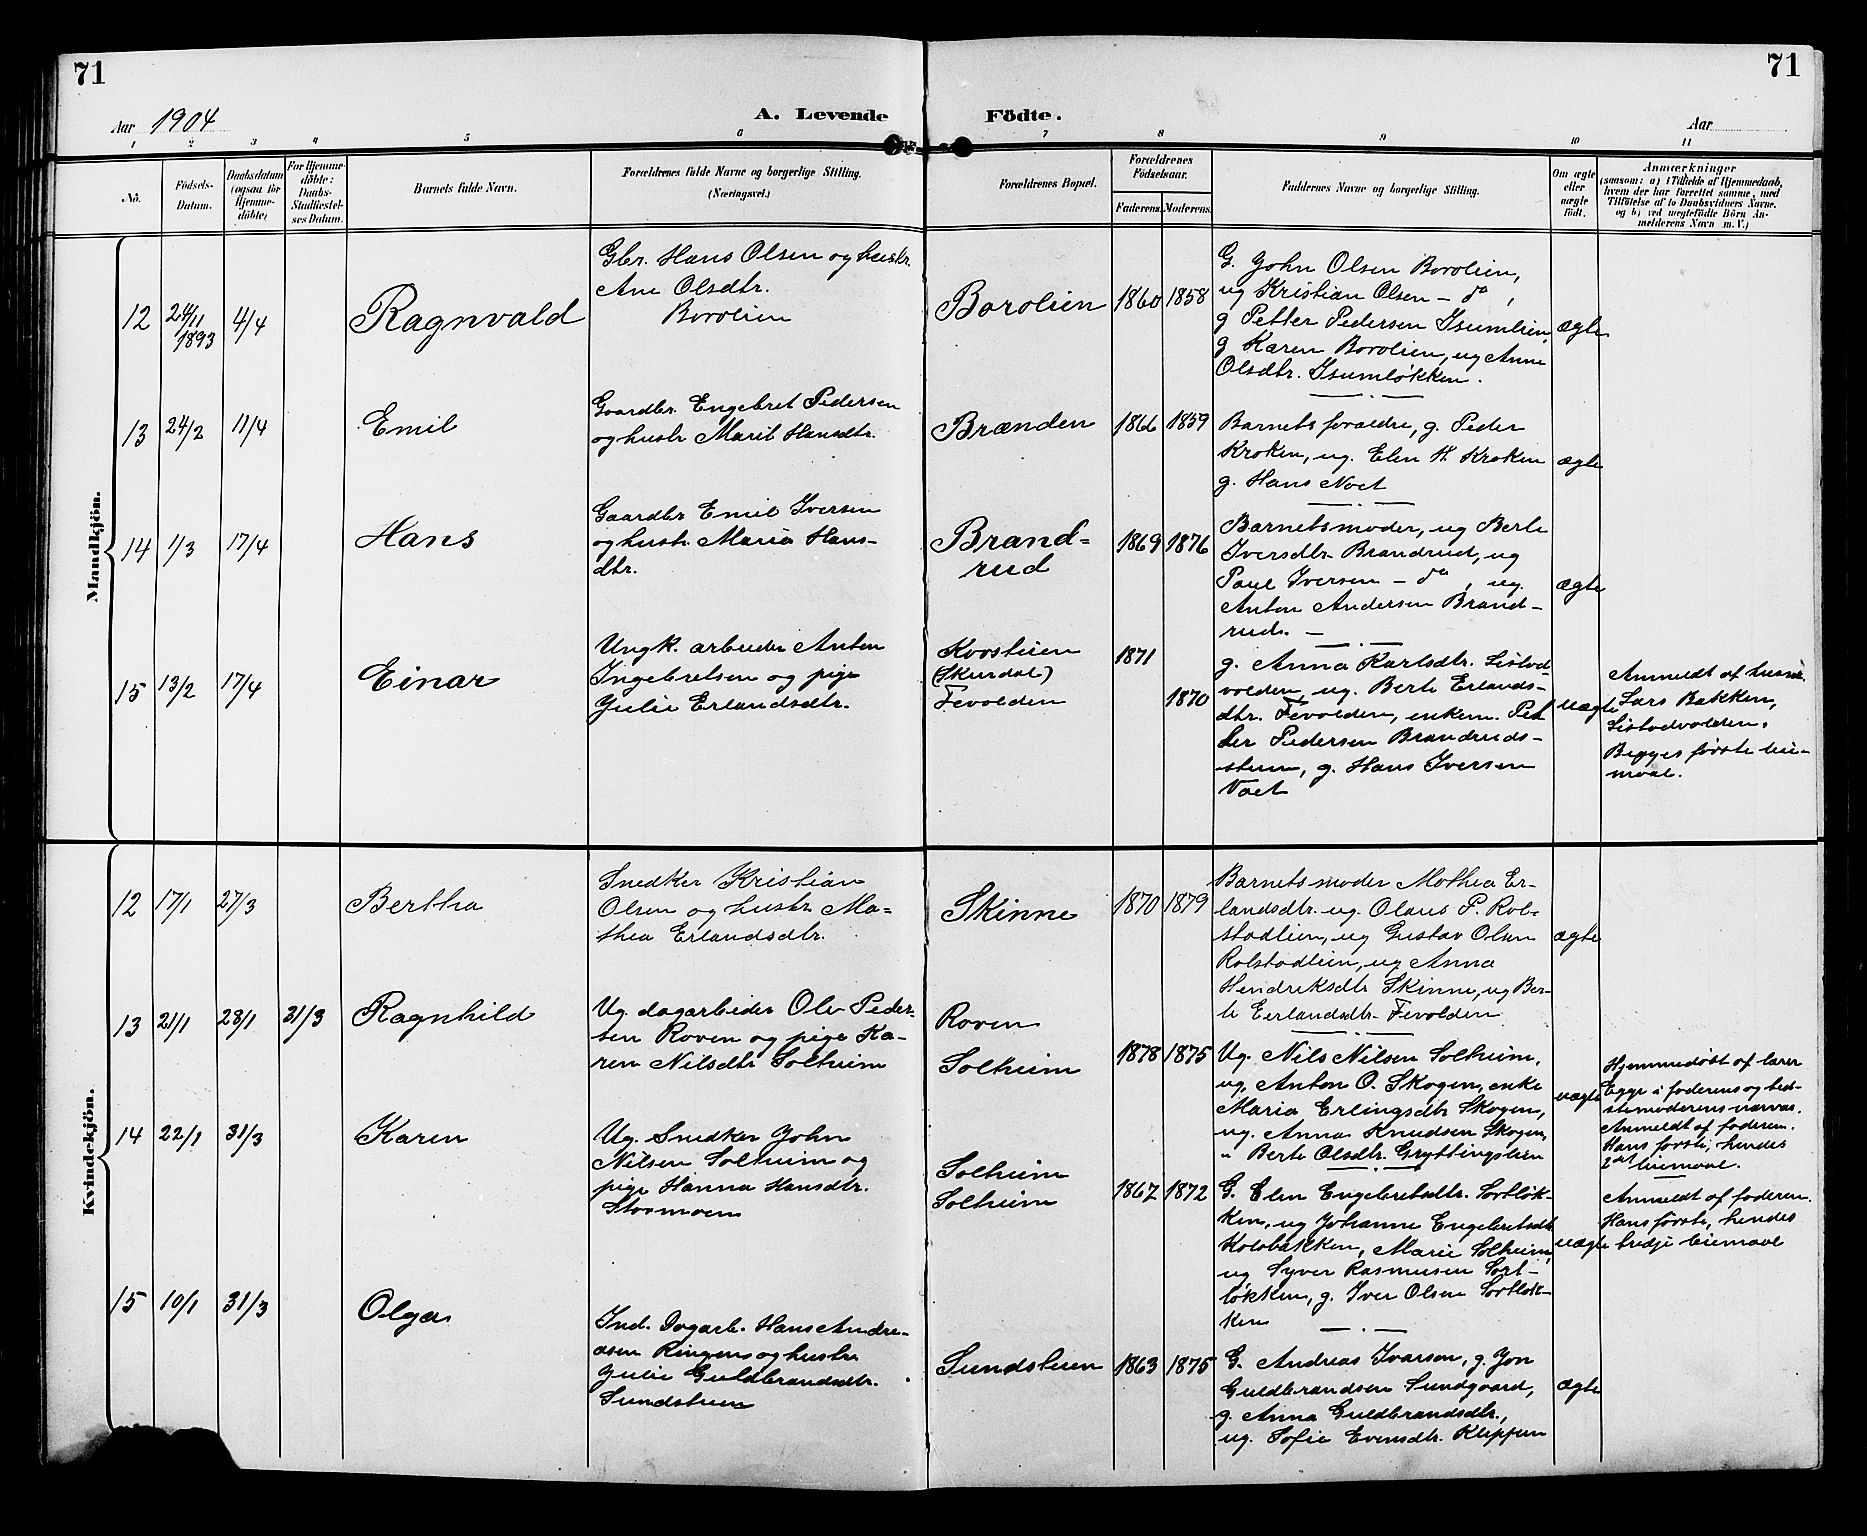 71
71
Aar 1904
A. Levende
Födte.
Aar
1 2 3 4 5 6 7 8 9 10 11
No.
Födsels-
Datum.
Daabsdatum
(ogsaa for
Hjemme-
döbte)
For Hjemme-
döbte:
Daabs-
Stadfæstel-
ses Datum.
Barnets fulde Navn.
Forældrenes fulde Navne og borgerlige Stilling.
(Næringsvei.)
Forældrenes Bopæl.
Forældrenes
Födselsaar.
Faderens. Moderens.
Faddernes Navne og borgerlige Stilling.
Om ægte
eller
uægte
födt.
Anmærkninger
(saasom: a) i Tilfælde af Hjemmedaab,
hvem der har forrettet samme, med
Tilföielse af to Daabsvidners Navne.
og b) ved uægtefödte Börn An-
melderens Navn m. V.)
Mandkjön.
12
24/11
1893
4/4
Ragnvald
Gbr. Hans Olsen og hustr.
Ane Olsdtr.
Borolien
Borolien
1860 1858
G. John Olsen Borolien,
ug Kristian Olsen - do,
g Petter Pedersen Isumlien,
g Karen Borolien, ug Anne
Olsdtr. Isumløkken.
ægte
13
24/2
11/4
Emil
Gaardbr. Engebret Pedersen
og hustr Marit Hansdtr.
Brænden
1866 1859
Barnets forældre, g. Peder
Kroken, ug. Elen H. Kroken
g. Hans Noet
ægte
14
1/3
17/4
Hans
Gaardbr Emil Iversen
og hustr. Maria Hans-
dtr.
Brand-
rud
1869 1876
Barnets moder, ug Berte
Iversdtr. Brandrud, ug
Paul Iversen - do, ug.
Anton Andersen Brand-
rud. -
ægte
15
13/2
17/4
Einar
Ungk. arbeider Anton
Ingebretsen og pige
Julie Erlandsdtr.
(Skurdal)
Fevolden
1871
1870
g. Anna Karlsdtr. Listad-
volden, ug. Berte Erlands-
dtr. Fevolden, enkem. Pe-
der Pedersen Brandruds-
stuen, g. Hans Iversen
uægte
Anmeldt af
Lars Bakken,
Listadvolden.
Begges første leie-
maal.
Kvindekjön.
12
17/1
27/3
Bertha
Snedker Kristian
Olsen og hustr. Ma-
thea Erlandsdtr.
Skinne
1870 1879
Barnets moder Mathea Er-
landsdtr. ug. Olaus P. Rol-
stadlien, ug Gustav Olsen
Rolstadlien, ug Anna
Hendriksdtr Skinne, ug Ber-
te Erlandsdtr. Fevolden
ægte
13
21/1
28/1
31/3
Ragnhild
Ug. dagarbeider Ole Peder-
sen Roven og pige Ka-
ren Nilsdtr Solheim
Roven
Solheim
1878 1875
Ug. Nils Nilsen Solheim,
ug, Anton O. Skogen, enke
Maria Erlingsdtr Skogen,
ug. Anna Knudsen Skogen,
" Berte Olsdtr. Gryttingslien
uægte
Hjemmedøbt af lærer
Egge i faderens og bed-
stemoderens nærvær.
Anmeldt af faderen.
Hans første, hendes
2det leiemaal.
14
22/1
31/3
Karen
Ug. Snedker John
Nilsen Solheim og
pige Hanna Hansdtr.
Stormoen
Solheim
Solheim
1867 1872
G. Elen Engebretsdtr. Sortløk-
ken, ug Johanne Engebretsdtr
Kolobakken, Marie Solheim,
ug Syver Rasmusen Sort-
løkken, g. Iver Olsen Sortløk-
ken
uægte
Anmeldt af faderen.
Hans første, hendes
tredje leiemaal
15
10/1
31/3
Olga
Ind. Dagarb. Hans Andre-
asen Ringen og hustr.
Julie Guldbrandsdtr.
Sundstuen
Sundstuen
1863 1875
G. Andreas Ivarsen, g. Jon
Guldbrandsen Sundgaard,
g. Anna Guldbrandsdtr.,
ug. Sofie Evensdtr. Kleppen
ægte